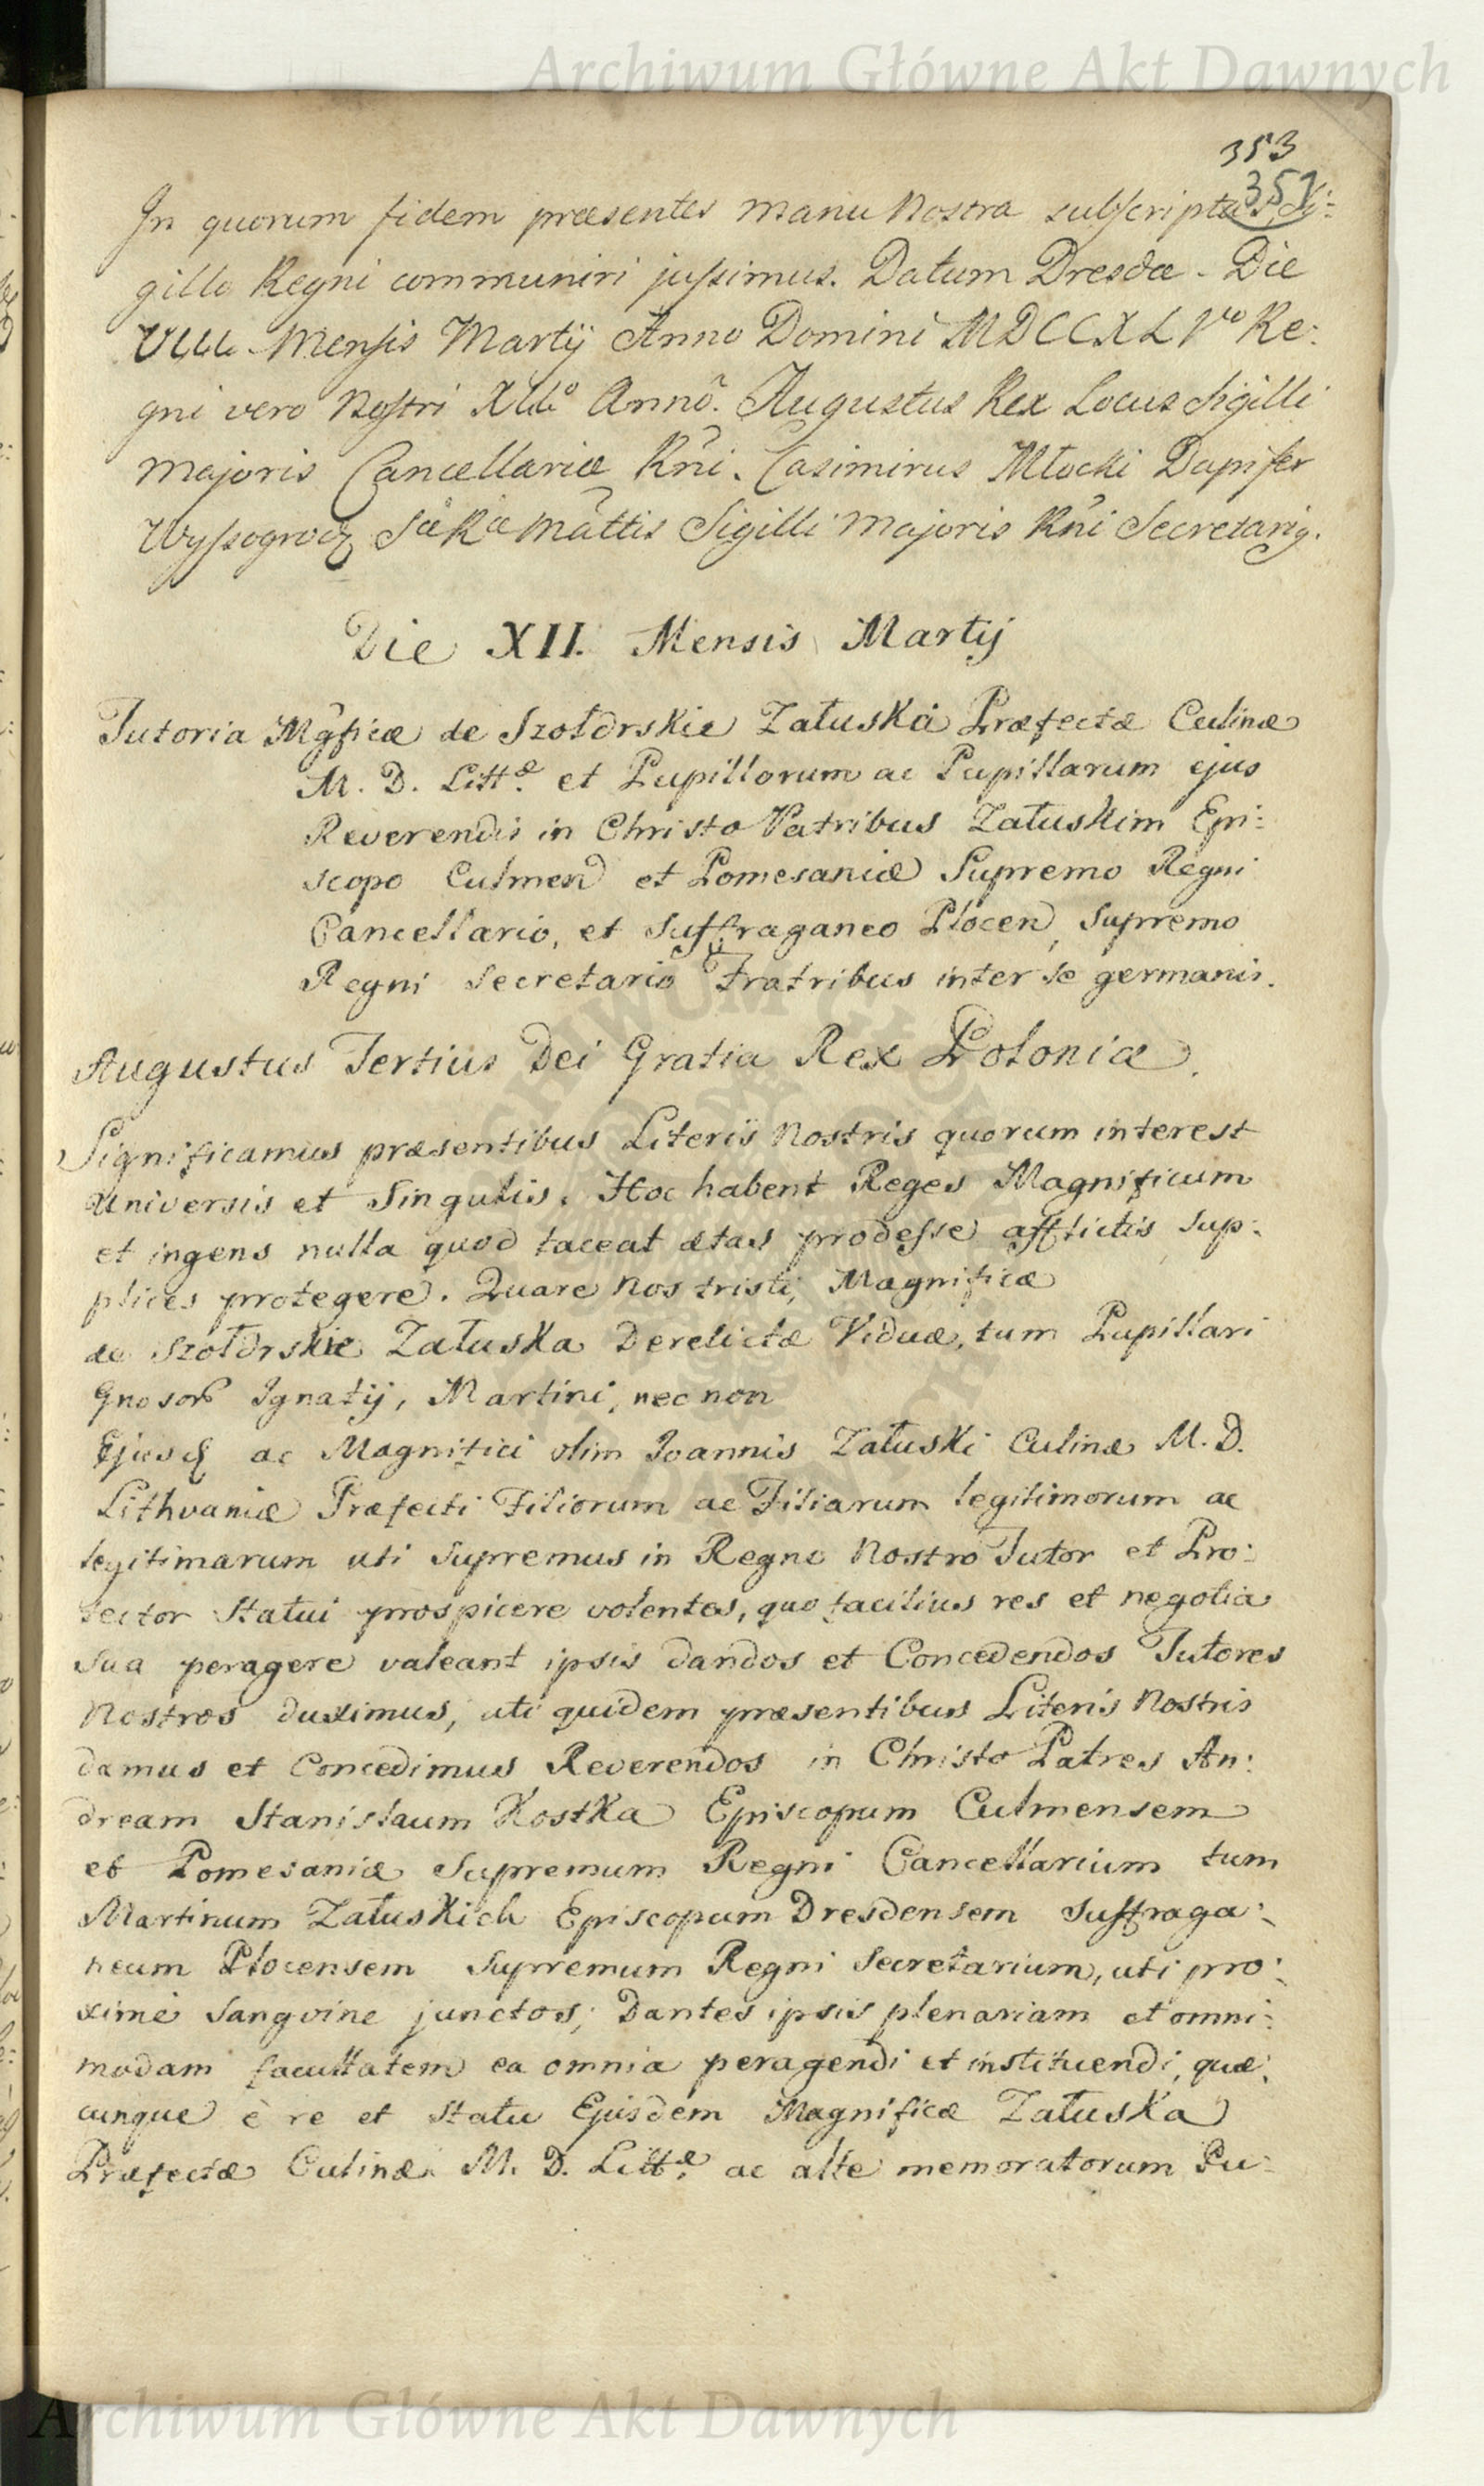 Archiwum Główne Akt Dawnych
353
351
In quorum fidem præsentes manu Nostra subscriptas Si=
gillo Regni communiri jussimus. Datum Dresdæ. Die
VIII. Mensis Martij Anno Domini MDCCXLVto Re:
gni vero Nostri XIIo Anno. Augustus Rex Locus Sigilli
Majoris Cancellariæ Rni. Casimirus Młocki Dapifer
Wyssogrod Sæ Ræ Mattis Sigilli Majoris Rni Secretarig.
Die XII. Mensis Martij
Tutoria Mgficæ de Szołdrskie Załuska Præfectæ Culinæ
M. D. Littæ et Pupillorum ac Pupillarum ejus
Reverendis in Christo Patribus Załuskim Epi:
scopo Culmen et Pomesaniæ Supremo Regni
Cancellario, et Suffraganeo Plocen, Supremo
Regni Secretario Fratribus inter se germanis.
Augustus Tertius Dei Gratia Rex Poloniæ.
Significamus præsentibus Literis Nostris quorum interest
Universis et Singulis. Hoc habent Reges Magnificum
et ingens nulla quod taceat ætas prodesse afflictis sup:
plices protegere. Quare Nos tristi, Magnificæ
de Szołdrskie Załuska Derelictæ Viduæ, tum Pupillari
Gnosor Ignatij, Martini, nec non
Ejusq ac Magnifici olim Joannis Załuski Culinæ M. D.
Lithvaniæ Præfecti Filiorum ac Filiarum legitimorum ac
legitimarum uti Supremus in Regno Nostro Tutor et Pro:
tector Statui prospicere volentes, quo facilius res et negotia
sua peragere valeant ipsis dandos et Concedendos Tutores
Nostros duximus, uti quidem præsentibus Literis Nostris
damus et Concedimus Reverendos in Christo Patres An:
dream Stanislaum Kostka Episcopum Culmensem
et Pomesaniæ Supremum Regni Cancellarium tum
Martinum Załuskich Episcopum Dresdensem Suffraga:
neum Plocensem Supremum Regni Secretarium, uti pro:
ximè Sangvine junctos; Dantes ipsis plenariam et omni:
modam facultatem ea omnia peragendi et instituendi, quæ:
cunque è re et Statu Ejusdem Magnificæ Załuska
Præfectæ Culinæ M. D. Littæ ac alte memoratorum Pu:
Archiwum Główne Akt Dawnych